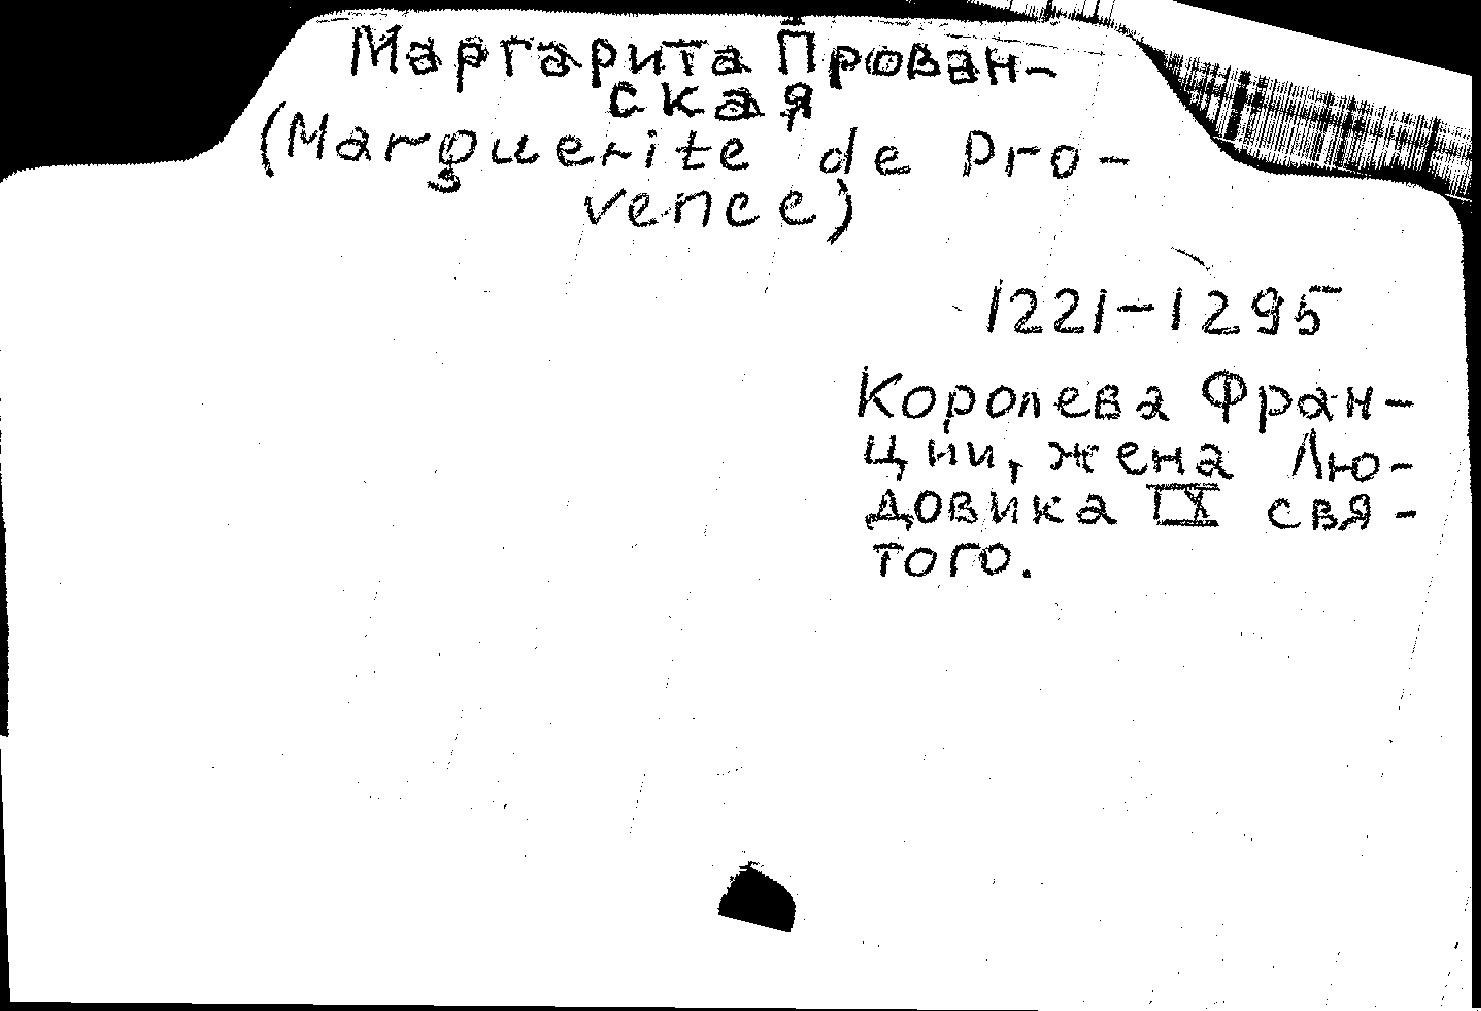 Маргарита Прован-
ская
(Marguerite de Pro-
vence)
1221-1295
Королева Фран-
ции, жена Лю-
довика IX свя-
того.